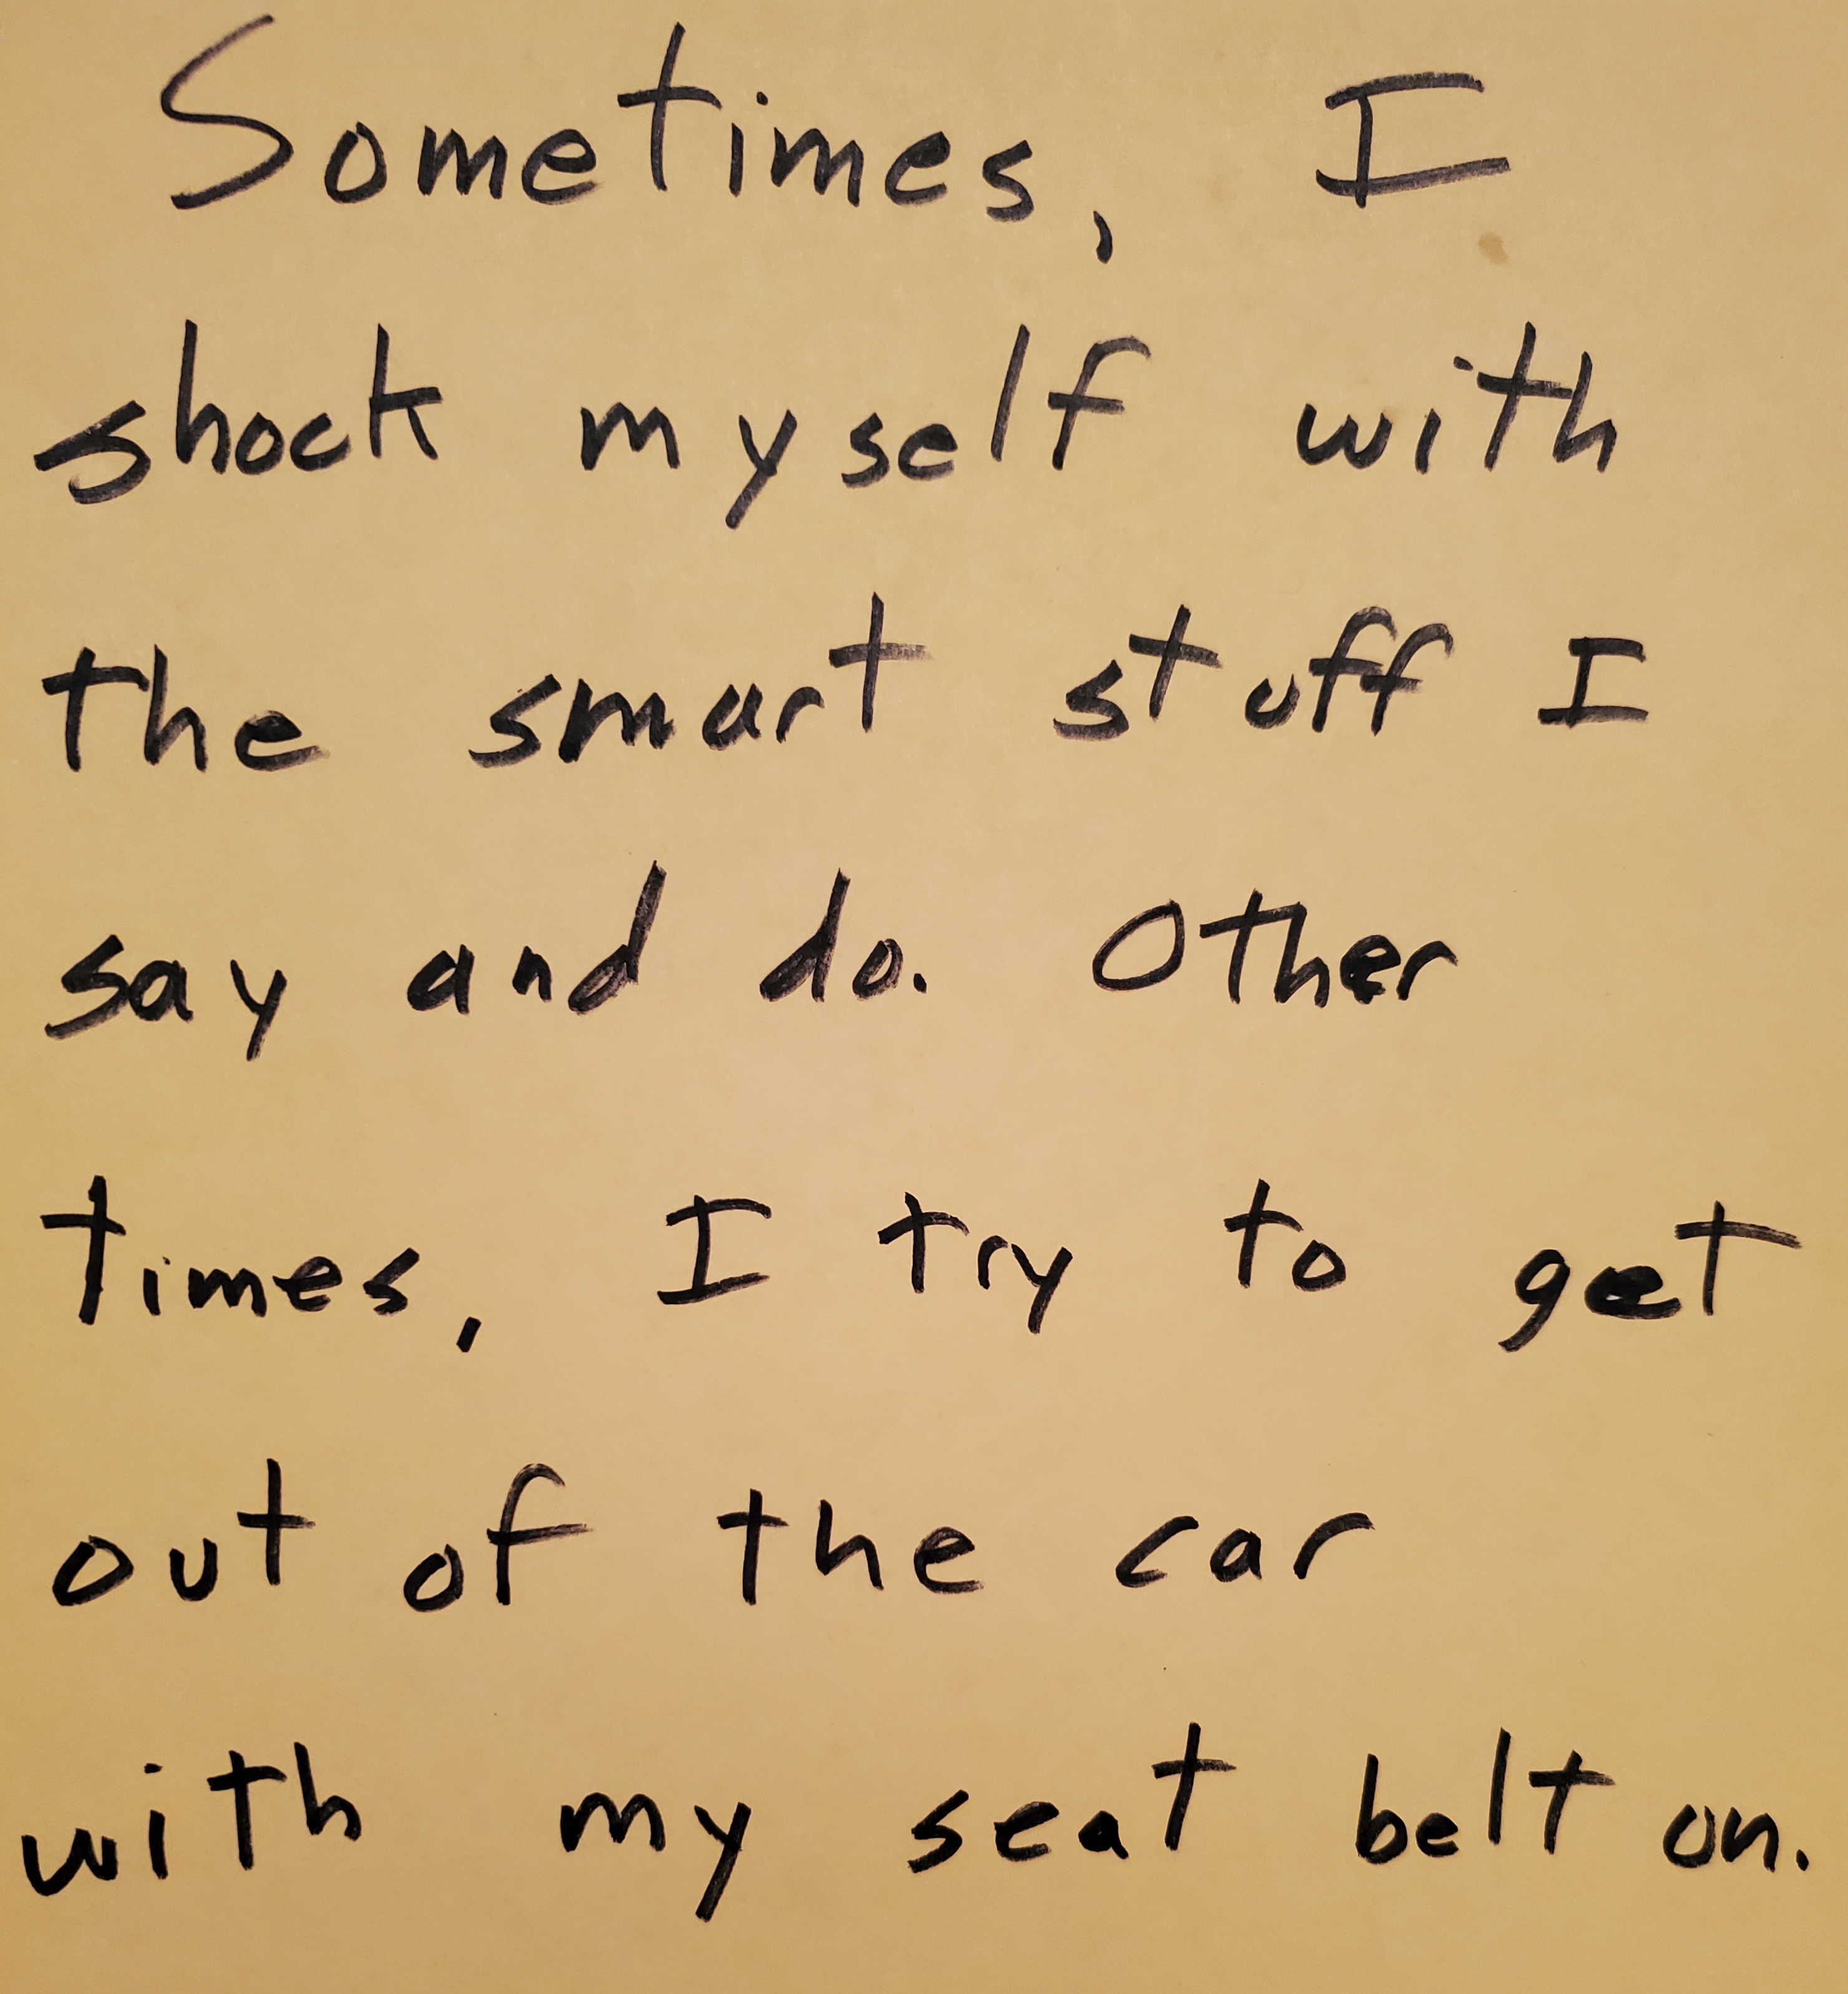 Sometimes, I
shock myself with
the smart stuff I
say and do. Other
times, I try to get
out of the car
with my seat belt on.